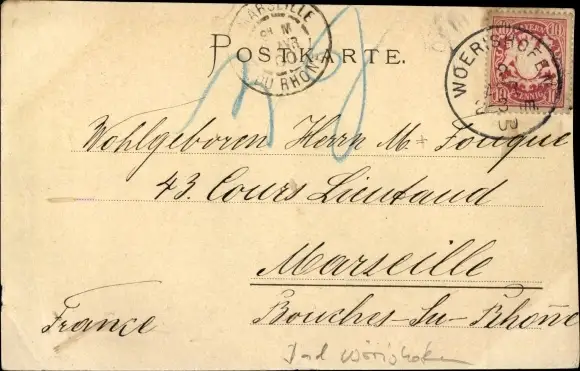 MARSEILLE
AVRIL
DU RHONE
POSTKARTE.
BAYERN
10 10
PFENNIG
WOERISHOFEN
Wohlgeboren Herrn M. Fouque
43. Cours Lieutaud
Marseille
Bouches-du-Rhône
France
Bad Wörishofen